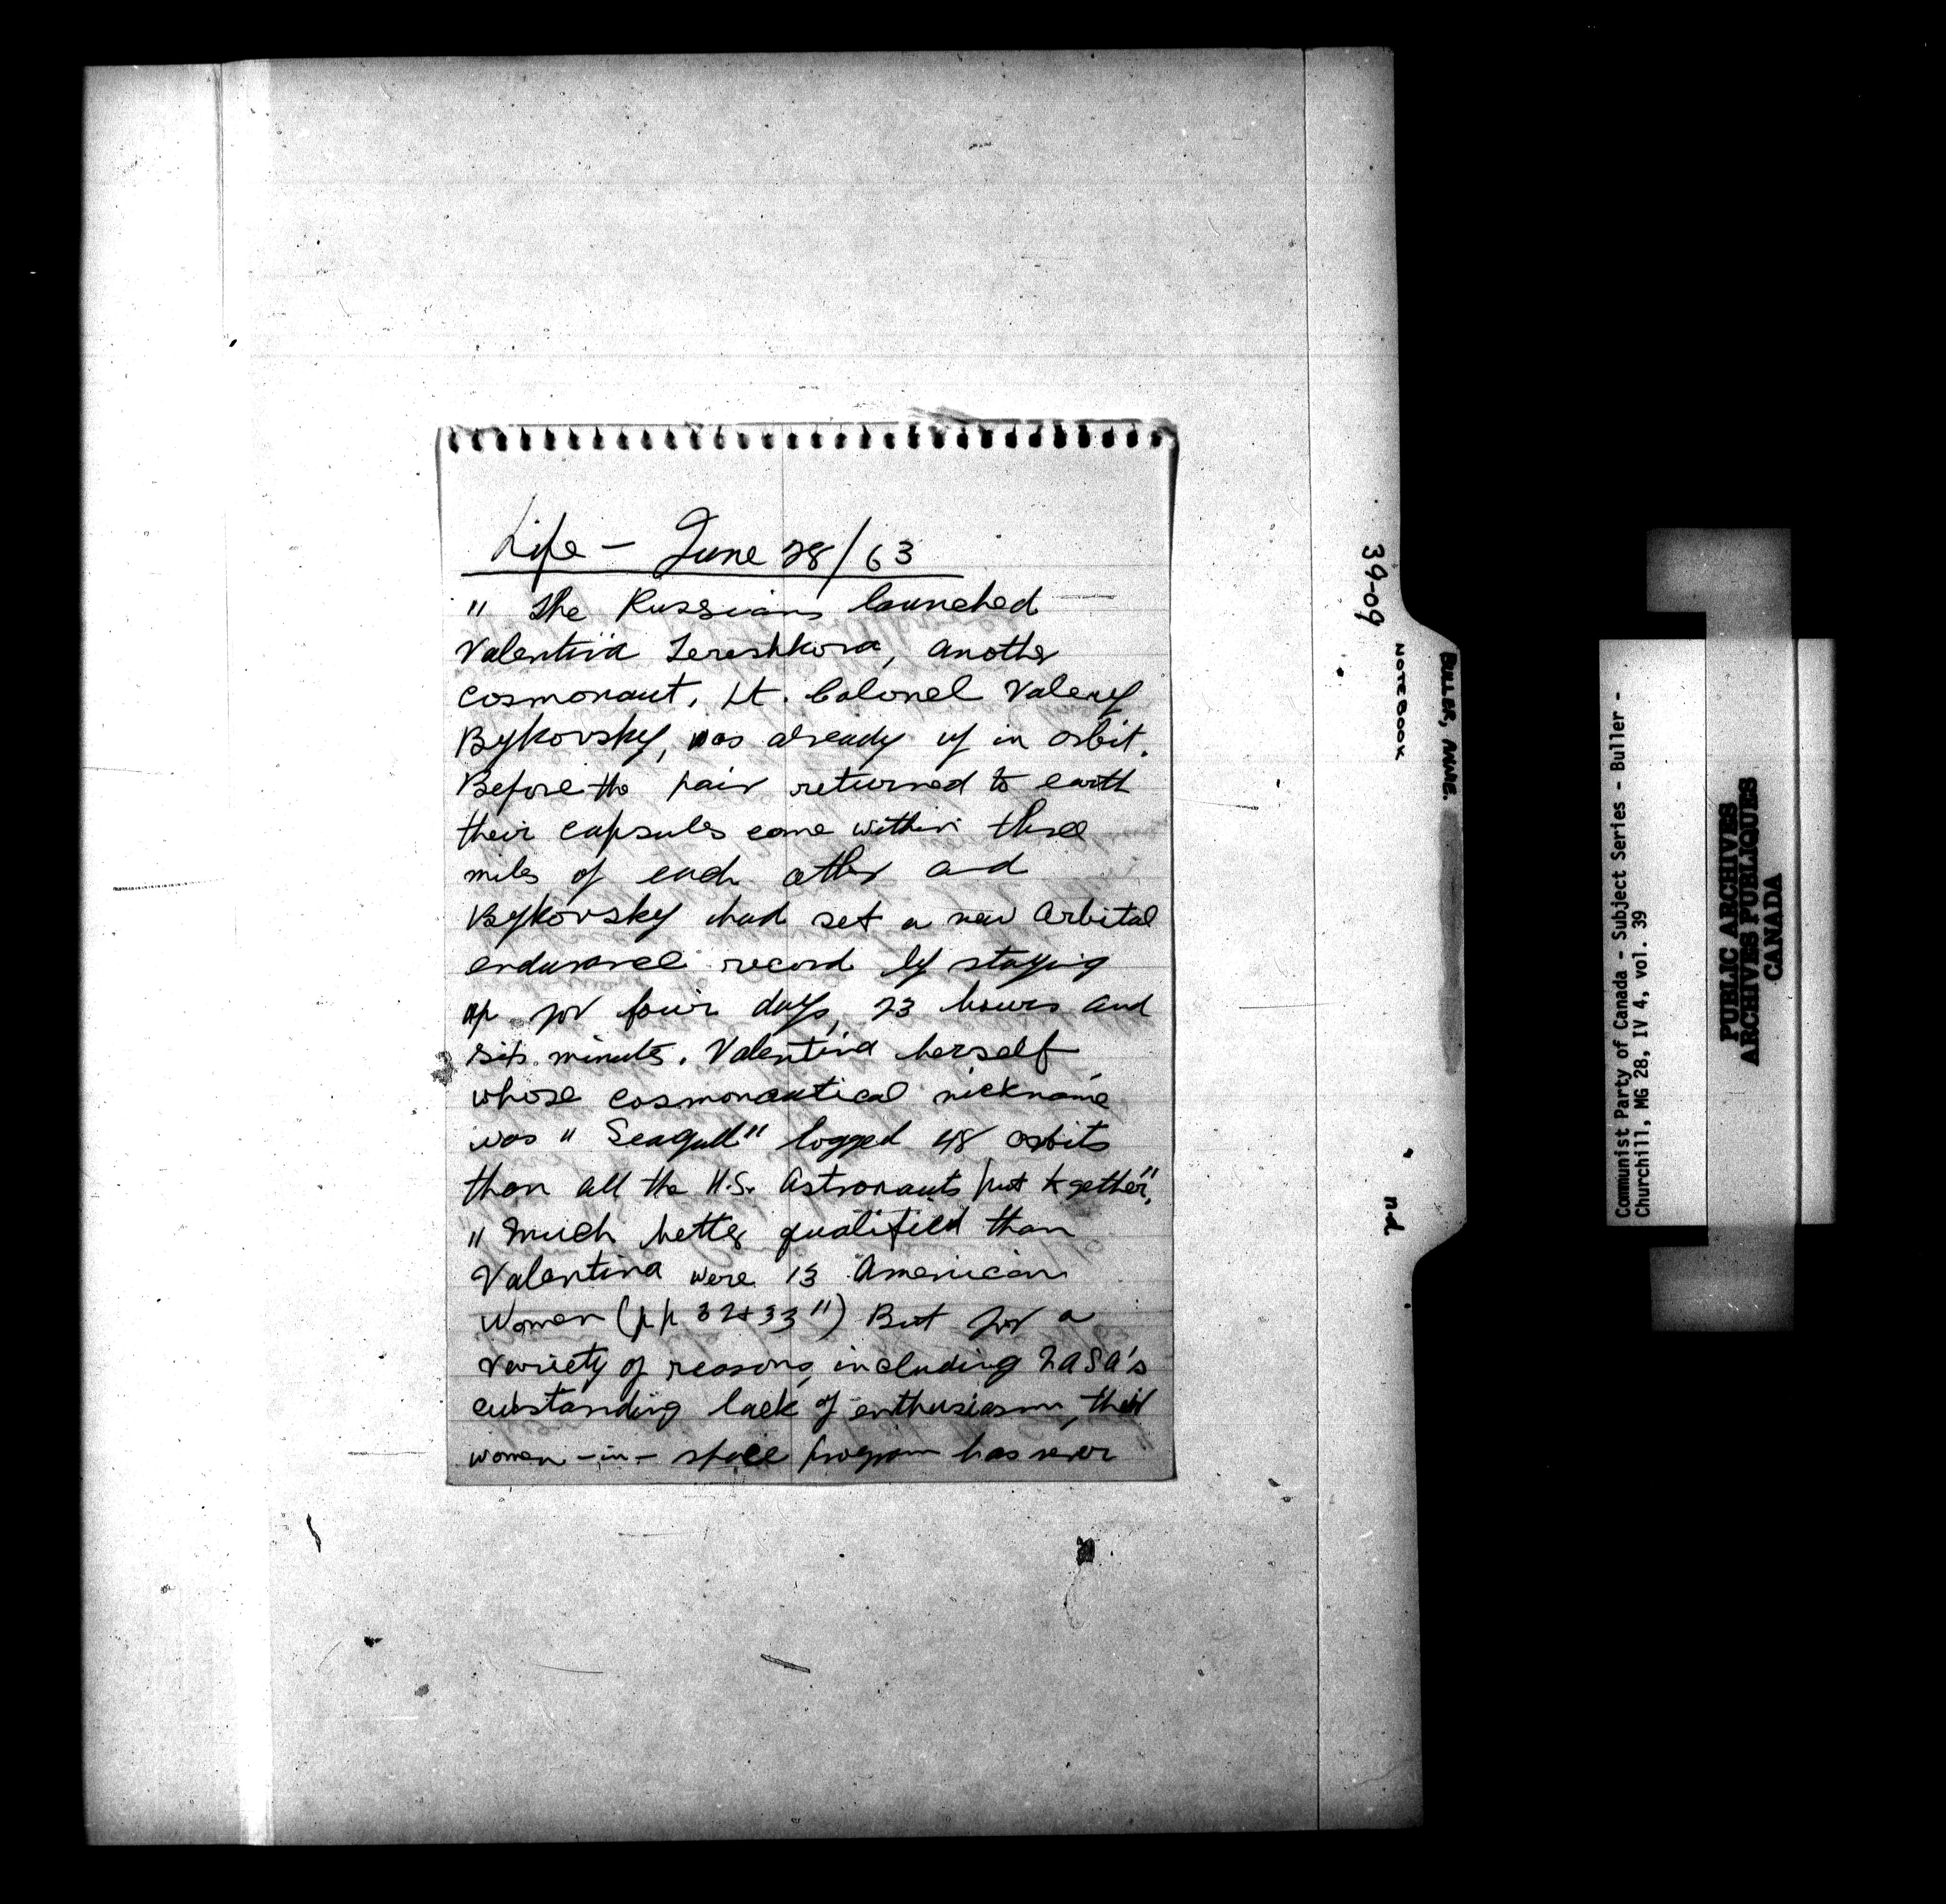 Life - June 28/63
" The Russians launched
Valentina Tereshkova, another
cosmonaut, Lt. Colonel Valery
Bykovsky, was already up in orbit.
Before the pair returned to earth
their capsules came within three
miles of each other and
Bykovsky had set a new orbital
endurance record by staying
up for four days, 23 hours and
six minutes. Valentina herself
whose cosmonautical nickname
was "Seagull" logged 48 orbits
than all the U.S. Astronauts put together".
" Much better qualified than
Valentina were 13 American
Women (pp 32+33") But for a
variety of reasons, including NASA's
outstanding lack of enthusiasm, their
women-in-space program has never
39-09
NOTEBOOK
n.d
BULLER, ANNIE.
Communist Party of Canada - Subject Series - Buller -
Churchill, MG 28, IV 4, vol. 39
PUBLIC ARCHIVES
ARCHIVES PUBLIQUES
CANADA